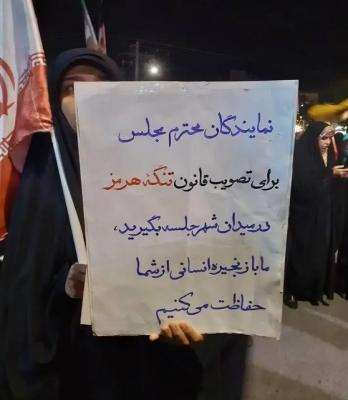 نمایندگان محترم مجلس
برای تصویب قانون تنگهٔ هرمز
در میدان شهر جلسه بگیرید،
ما با زنجیره انسانی از شما
حفاظت می‌کنیم